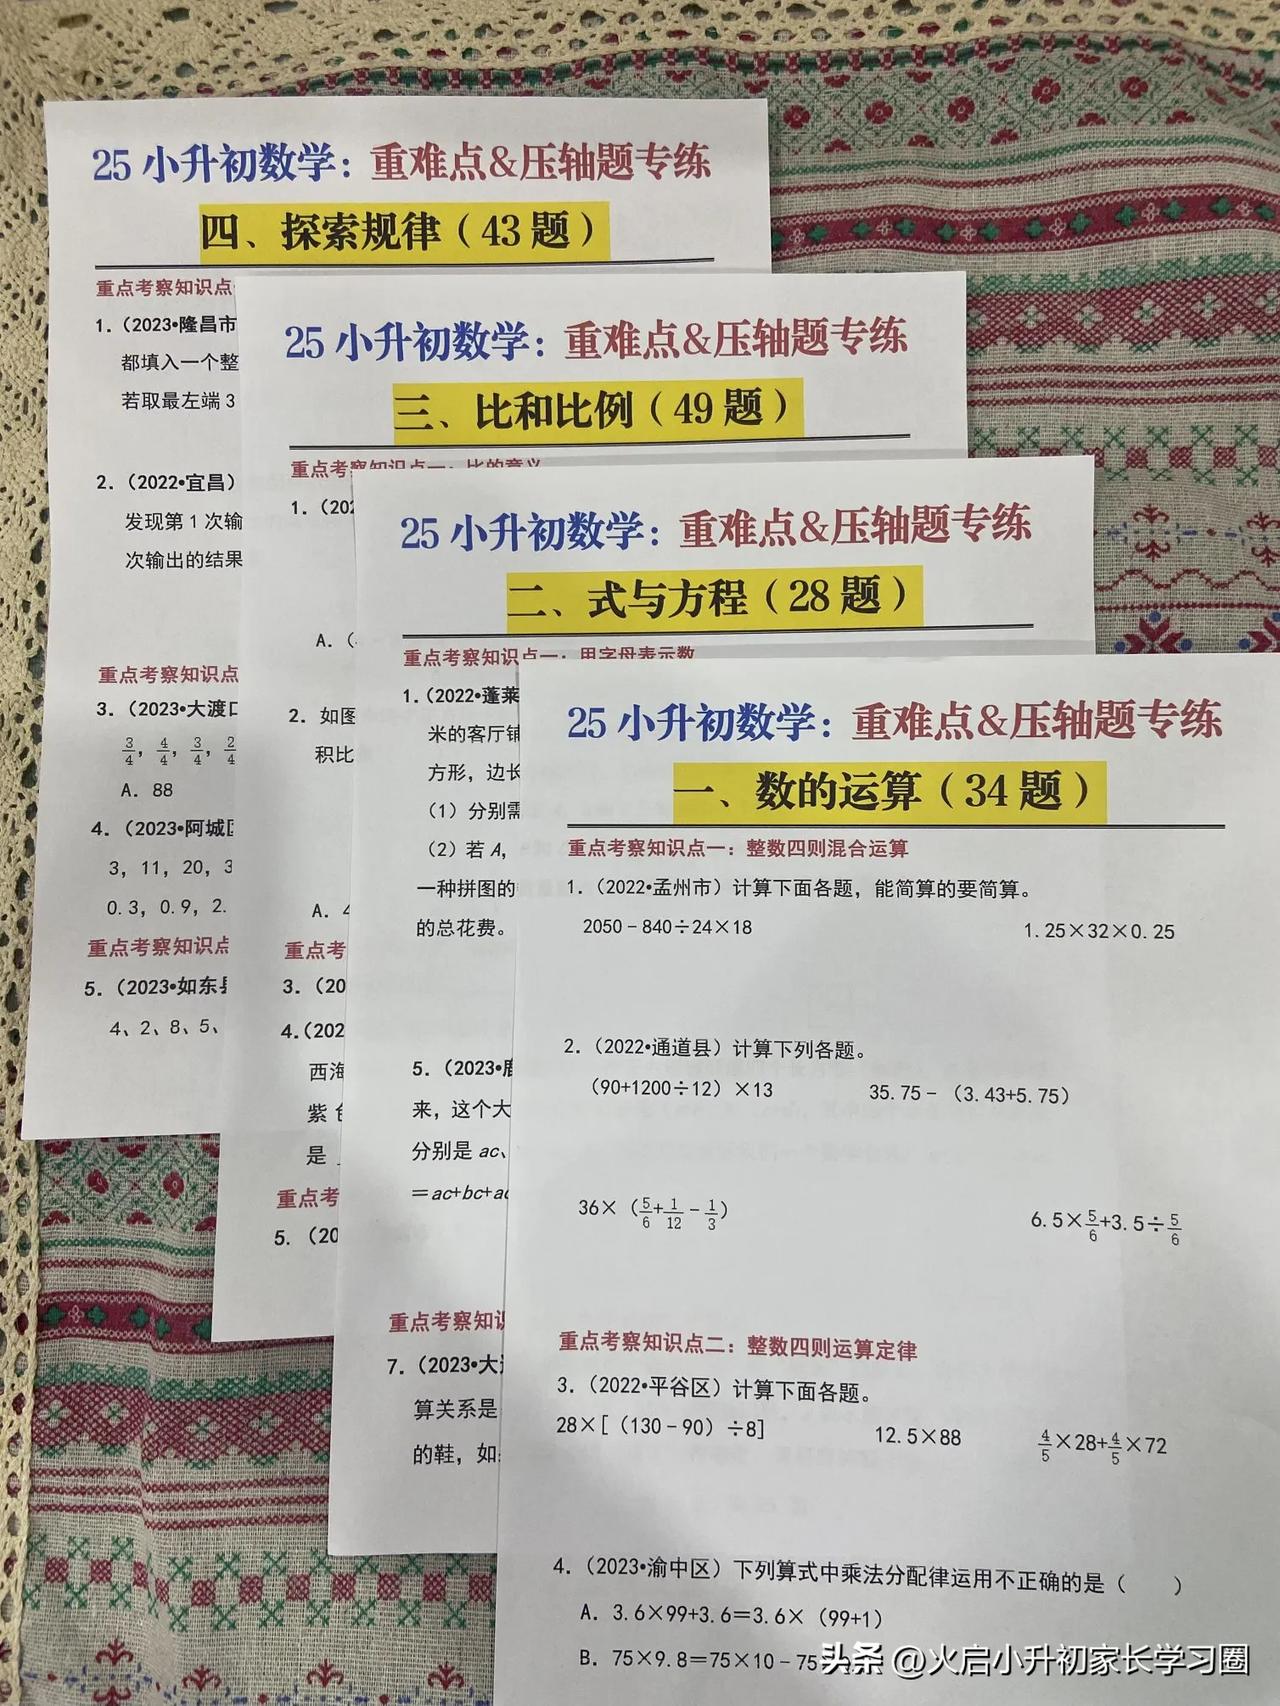 25 小升初数学：重难点&压轴题专练
四、探索规律（43 题）
重点考察知识点
1.（2023•隆昌市
都填入一个整
若取最左端 3
2.（2022•宜昌）
发现第 1 次输
次输出的结果
重点考察知识点
3.（2023•大渡口
3/4，4/4，3/4，2/4
A. 88
4.（2023•阿城区
3，11，20，3
0.3，0.9，2.
重点考察知识点
5.（2023•如东县
4、2、8、5、
25 小升初数学：重难点&压轴题专练
三、比和比例（49 题）
重点考察知识点一：比的意义
1.（202
A.（
2. 如图
积比
A. 4
重点考
3.（20
4.（202
西海
紫 色
是
重点考
5.（20
25 小升初数学：重难点&压轴题专练
二、式与方程（28 题）
重点考察知识点一：用字母表示数
1.（2022•蓬莱
米的客厅铺
方形，边长
（1）分别需
（2）若 A，
一种拼图的
的总花费。
5.（2023•鹿
来，这个大
分别是 ac、
＝ac+bc+ad
重点考察知识
7.（2023•大
算关系是
的鞋，如
25 小升初数学：重难点&压轴题专练
一、数的运算（34 题）
重点考察知识点一：整数四则混合运算
1.（2022•孟州市）计算下面各题，能简算的要简算。
2050－840÷24×18 1.25×32×0.25
2.（2022•通道县）计算下列各题。
（90+1200÷12）×13 35.75－（3.43+5.75）
36×（5/6+1/12－1/3） 6.5×5/6+3.5÷5/6
重点考察知识点二：整数四则运算定律
3.（2022•平谷区）计算下面各题。
28×[（130－90）÷8] 12.5×88 4/5×28+4/5×72
4.（2023•渝中区）下列算式中乘法分配律运用不正确的是（ ）
A. 3.6×99+3.6＝3.6×（99+1）
B. 75×9.8＝75×10－75
头条 @火启小升初家长学习圈